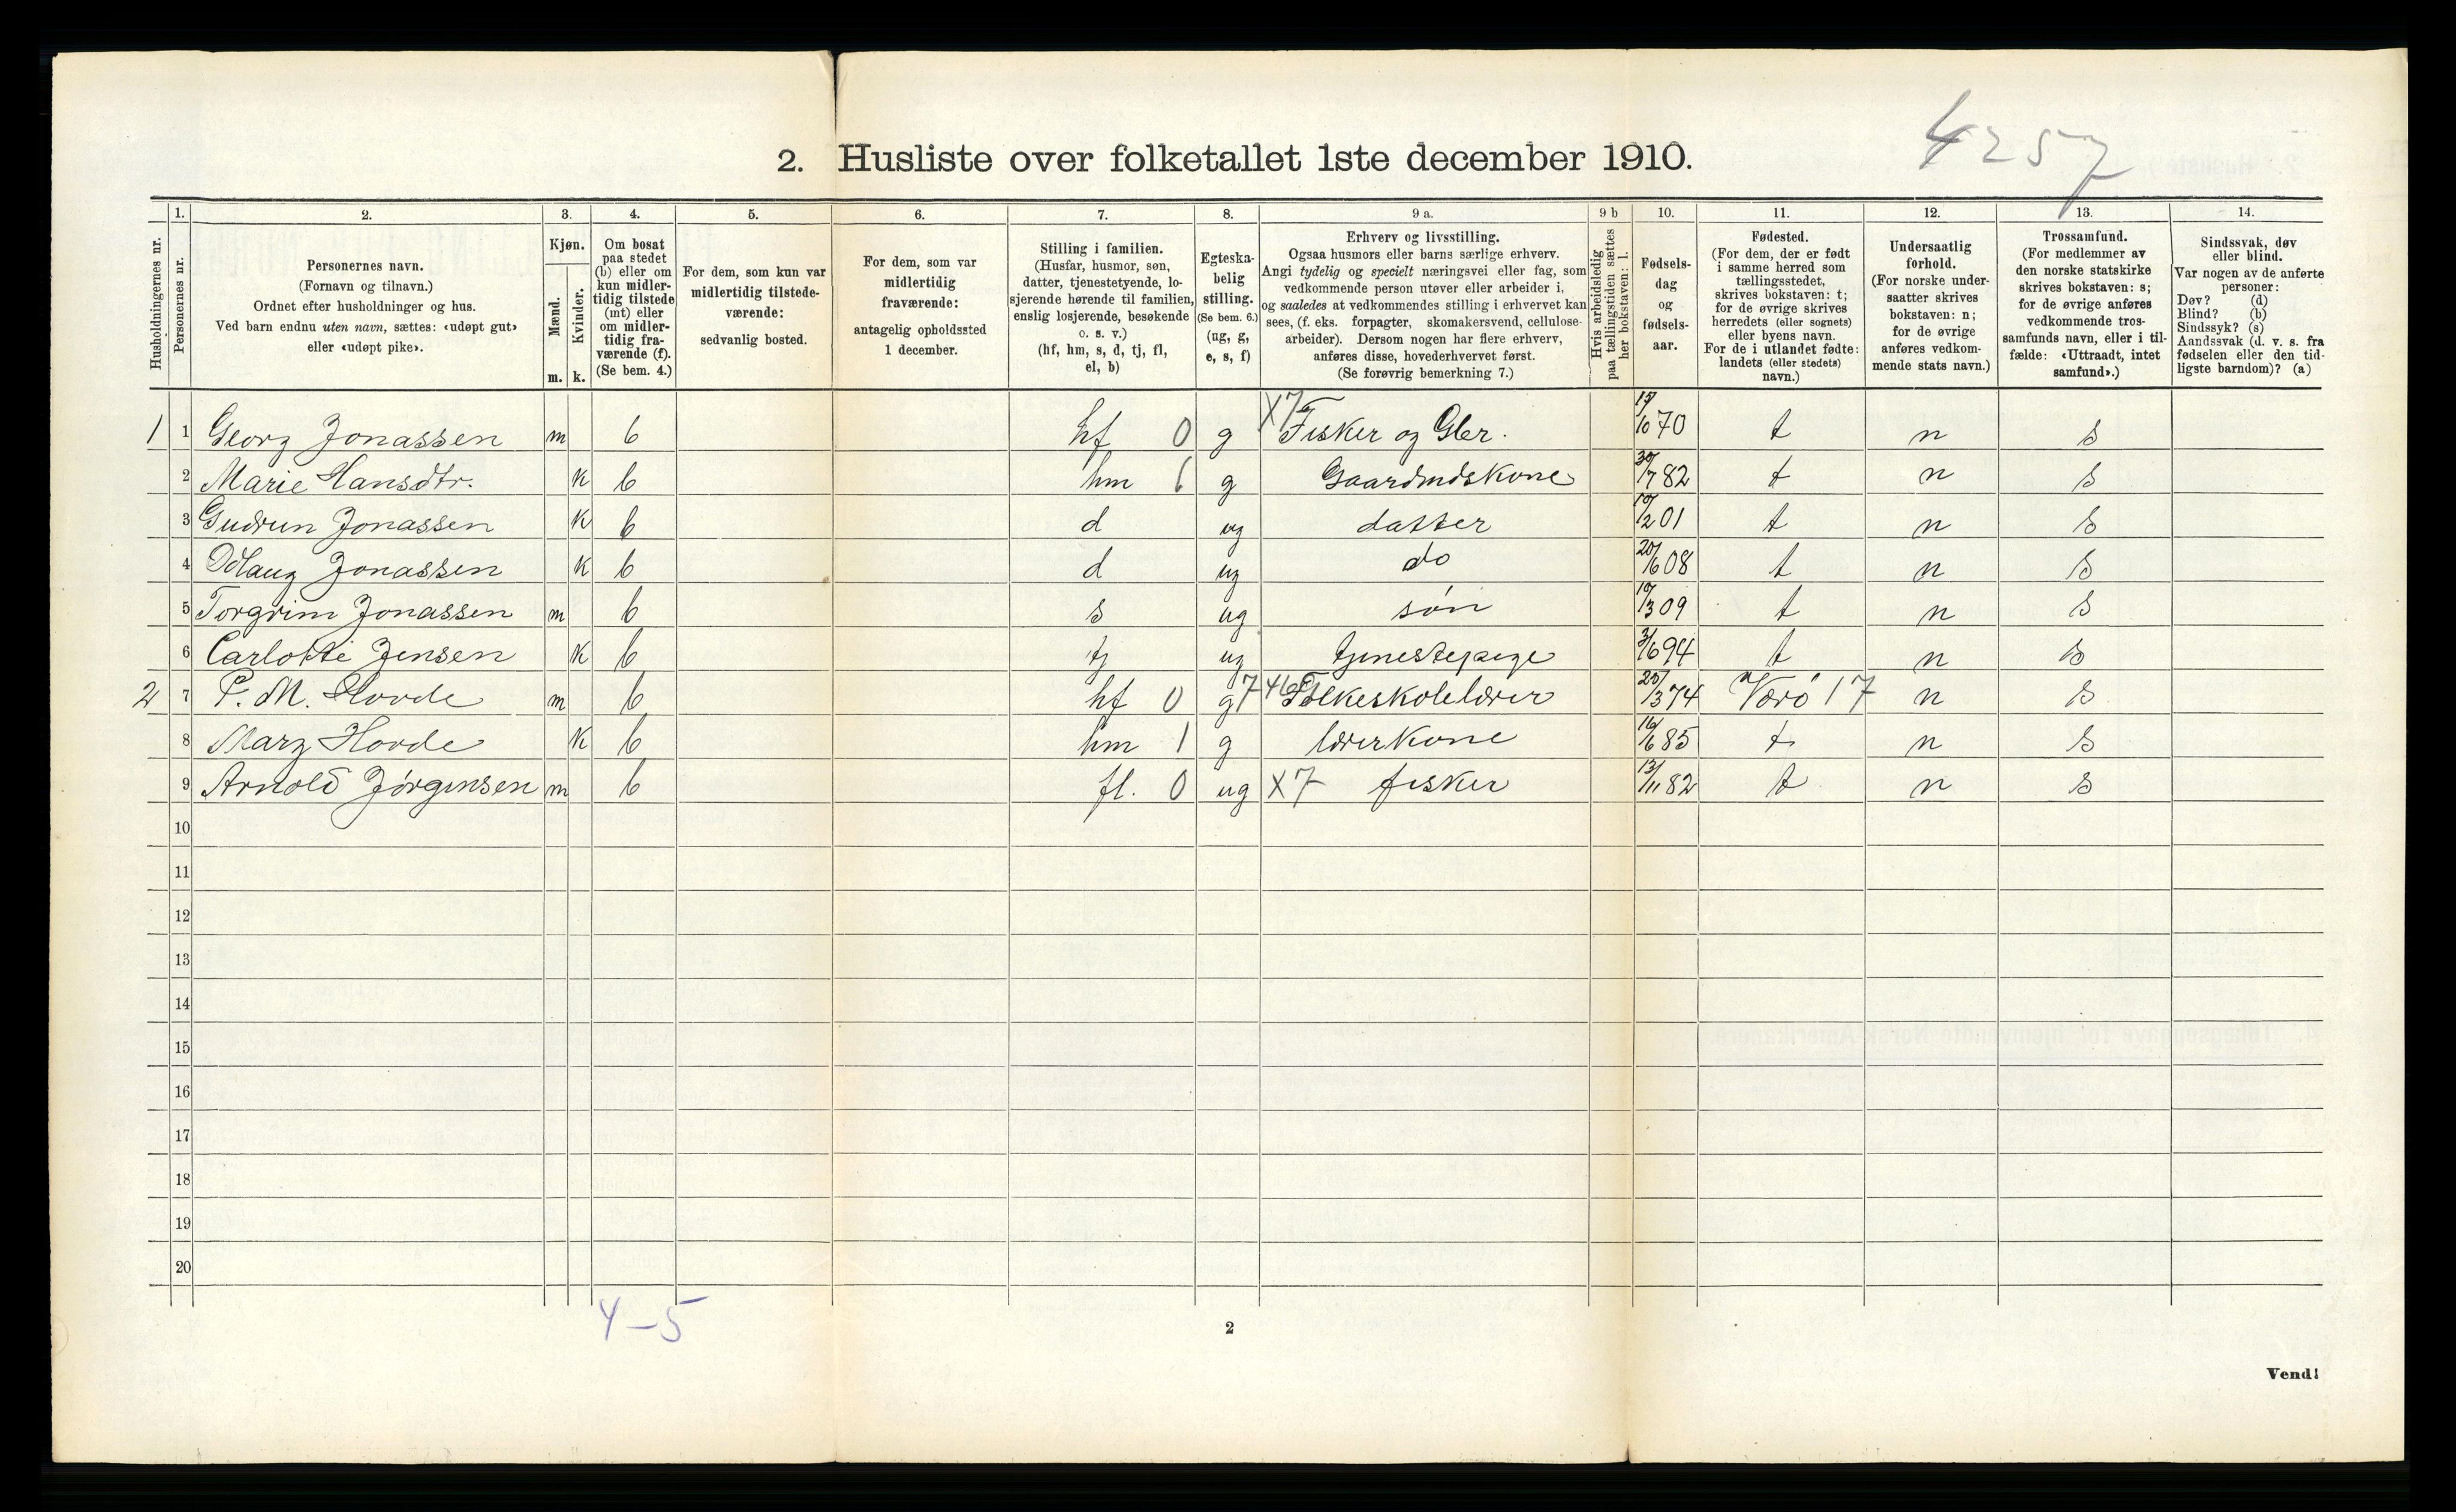 4257
2. Husliste over folketallet 1ste december 1910.
Husholdningernes nr.
1.
Personernes nr.
2.
Personernes navn.
(Fornavn og tilnavn.)
Ordnet efter husholdninger og hus.
Ved barn endnu uten navn, sættes: «udøpt gut»
eller «udøpt pike».
3.
Kjøn.
Mænd.
Kvinder.
m. k.
4.
Om bosat
paa stedet
(b) eller om
kun midler-
tidig tilstede
(mt) eller
om midler-
tidig fra-
værende (f).
(Se bem. 4.)
5.
For dem, som kun var
midlertidig tilstede-
værende:
sedvanlig bosted.
6.
For dem, som var
midlertidig
fraværende:
antagelig opholdssted
1 december.
7.
Stilling i familien.
(Husfar, husmor, søn,
datter, tjenestetyende, lo-
sjerende hørende til familien,
enslig losjerende, besøkende
o. s. v.)
(hf, hm, s, d, tj, fl,
el, b)
8.
Egteska-
belig
stilling.
(Se bem. 6.)
(ug, g,
e, s, f)
9 a.
Erhverv og livsstilling.
Ogsaa husmors eller barns særlige erhverv.
Angi tydelig og specielt næringsvei eller fag, som
vedkommende person utøver eller arbeider i,
og saaledes at vedkommendes stilling i erhvervet kan
sees, (f. eks. forpagter, skomakersvend, cellulose-
arbeider). Dersom nogen har flere erhverv,
anføres disse, hovederhvervet først.
(Se forøvrig bemerkning 7.)
9 b
Hvis arbeidsledig
paa tællingstiden sættes
her bokstaven: l.
10.
Fødsels-
dag
og
fødsels-
aar.
11.
Fødested.
(For dem, der er født
i samme herred som
tællingsstedet,
skrives bokstaven: t;
for de øvrige skrives
herredets (eller sognets)
eller byens navn.
For de i utlandet fødte:
landets (eller stedets)
navn.)
12.
Undersaatlig
forhold.
(For norske under-
saatter skrives
bokstaven: n;
for de øvrige
anføres vedkom-
mende stats navn.)
13.
Trossamfund.
(For medlemmer av
den norske statskirke
skrives bokstaven: s;
for de øvrige anføres
vedkommende tros-
samfunds navn, eller i til-
fælde: «Uttraadt, intet
samfund».)
14.
Sindssvak, døv
eller blind.
Var nogen av de anførte
personer:
Døv? (d)
Blind? (b)
Sindssyk? (s)
Aandssvak (d. v. s. fra
fødselen eller den tid-
ligste barndom)? (a)
1 1 Georg Jonassen m b hf 0 g X7 Fisker og Gbr. 70 t n s
2 Marie Hansdtr. k b hm 1 g Gaardmdskone 30/7 82 t n s
3 Gudrun Jonassen k b d ug datter 01 t n s
4 Odlaug Jonassen k b d ug do 20/6 08 t n s
5 Torgrim Jonassen m b s ug søn 10/3 09 t n s
6 Carlotte Jensen k b tj ug tjenestepige 3/6 94 t n s
2 7 P. M. Hovde m b hf 0 g 7 Folkeskolelærer 20/3 74 Værø 17 n s
8 Marg Hovde k b hm 1 g lærerkone 16/6 85 t n s
9 Arnold Jørgensen m b fl. 0 ug X7 fisker 13/11 82 t n s
10
11
12
13
14
15
16
17
18
19
20
4-5
2
Vend!